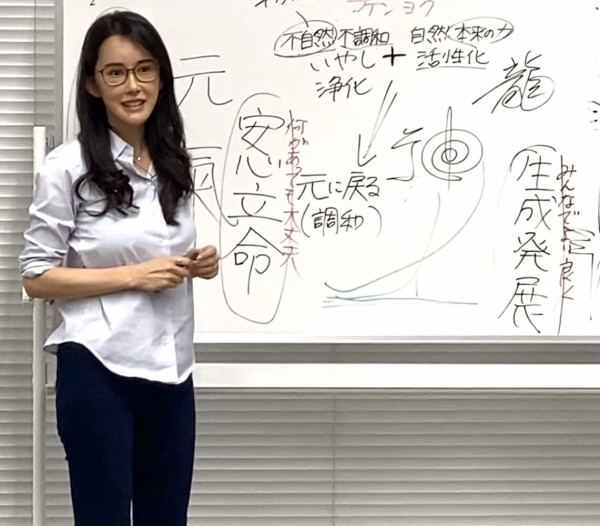 ケンヨク
不自然 不調和
いやし
浄化
+
自然 本来の力
活性化
龍
元
気
安心立命
何があっても大丈夫
元に戻る
(調和)
生成発展
みんなで
良く